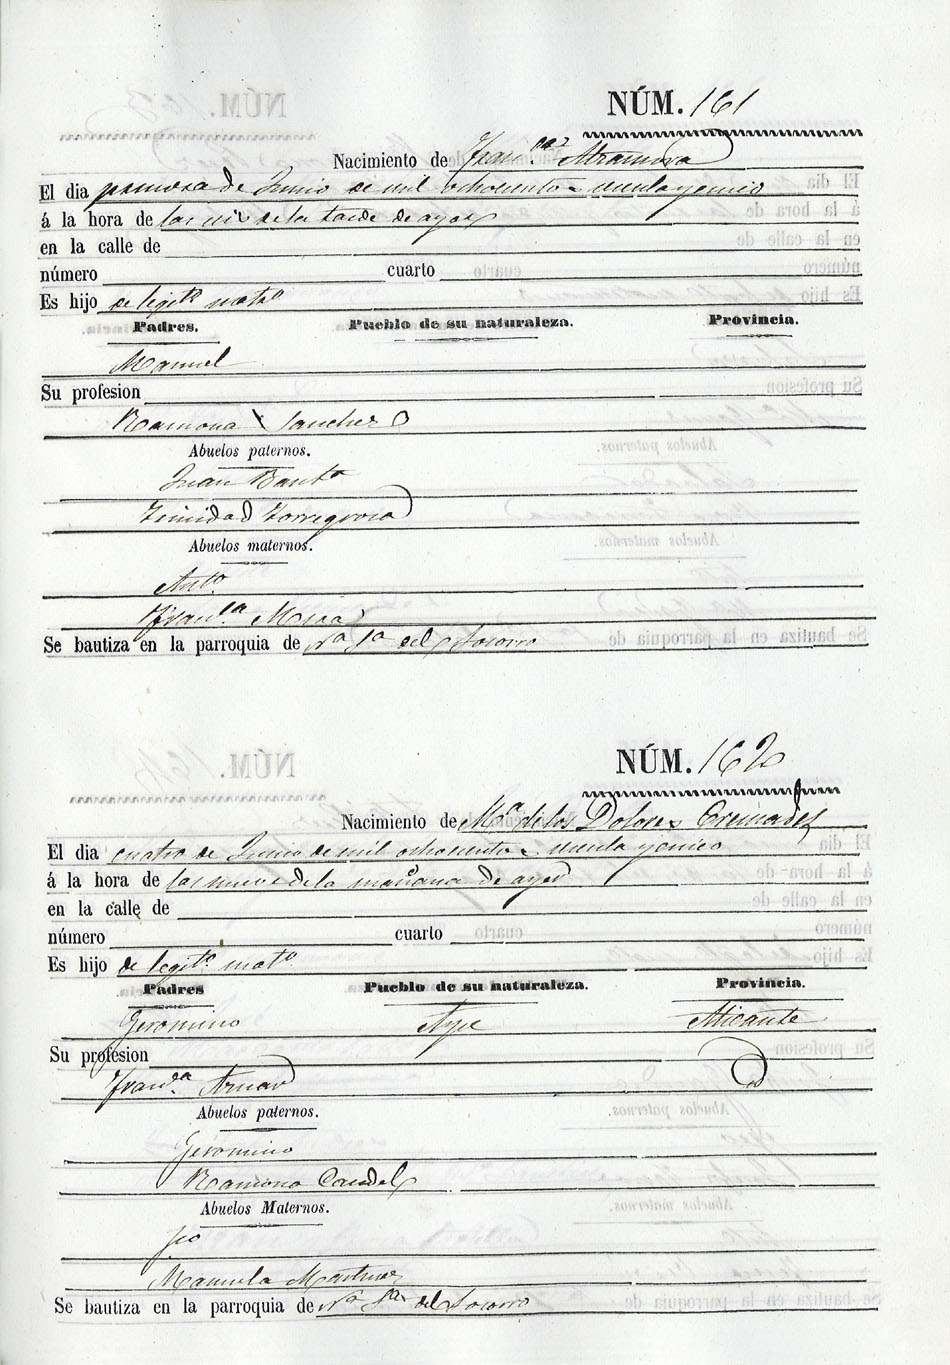 NÚM. 161
Nacimiento de Altamora
El dia primero de Junio de mil ochocientos y cinco
á la hora de las de la tarde de ayer
en la calle de
número cuarto
Es hijo de legito. mato.
Padres. Pueblo de su naturaleza. Provincia.
Manuel
Su profesion
Ramona Sanchez
Abuelos paternos.
Juan Bauta
Trinidad Torregrosa
Abuelos maternos.
Anto.
Franca. Mira
Se bautiza en la parroquia de Na Sa del Socorro
NÚM. 162
Nacimiento de Ma de los Dolores Cremades
El dia cuatro de Junio de mil ochocientos y cinco
á la hora de las nueve de la mañana de ayer
en la calle de
número cuarto
Es hijo de legito. mato.
Padres Pueblo de su naturaleza. Provincia.
Geromino Aspe Alicante
Su profesion
Franca. Aznar
Abuelos paternos.
Geromino
Ramona Candel
Abuelos Maternos.
Manuela Martinez
Se bautiza en la parroquia de Na Sa del Socorro